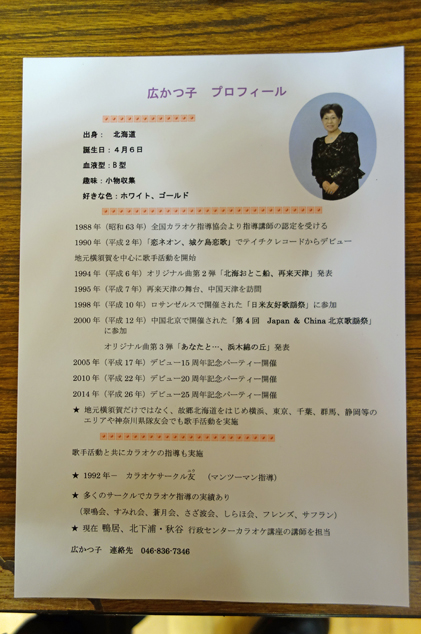 広かつ子　プロフィール
＊＊＊＊＊＊＊＊＊＊＊＊
出身：　北海道
誕生日：４月６日
血液型：B 型
趣味：小物収集
好きな色：ホワイト、ゴールド
1988 年（昭和 63 年）全国カラオケ指導協会より指導講師の認定を受ける
1990 年（平成 2 年）「恋ネオン、城ケ島恋歌」でテイチクレコードからデビュー
地元横須賀を中心に歌手活動を開始
1994 年（平成 6 年）オリジナル曲第 2 弾「北海おとこ船、再来天津」発表
1995 年（平成 7 年）再来天津の舞台、中国天津を訪問
1998 年（平成 10 年）ロサンゼルスで開催された「日米友好歌謡祭」に参加
2000 年（平成 12 年）中国北京で開催された「第 4 回　Japan ＆ China 北京歌謡祭」
に参加
オリジナル曲第 3 弾「あなたと…、浜木綿の丘」発表
2005 年（平成 17 年）デビュー15 周年記念パーティー開催
2010 年（平成 22 年）デビュー20 周年記念パーティー開催
2014 年（平成 26 年）デビュー25 周年記念パーティー開催
★ 地元横須賀だけではなく、故郷北海道をはじめ横浜、東京、千葉、群馬、静岡等の
エリアや神奈川県隊友会でも歌手活動を実施
歌手活動と共にカラオケの指導も実施
★ 1992 年－　カラオケサークル友　（マンツーマン指導）
★ 多くのサークルでカラオケ指導の実績あり
（翠鳴会、すみれ会、蒼月会、さざ波会、しらほ会、フレンズ、サフラン）
★ 現在 鴨居、北下浦・秋谷 行政センターカラオケ講座の講師を担当
広かつ子　連絡先　046-836-7346